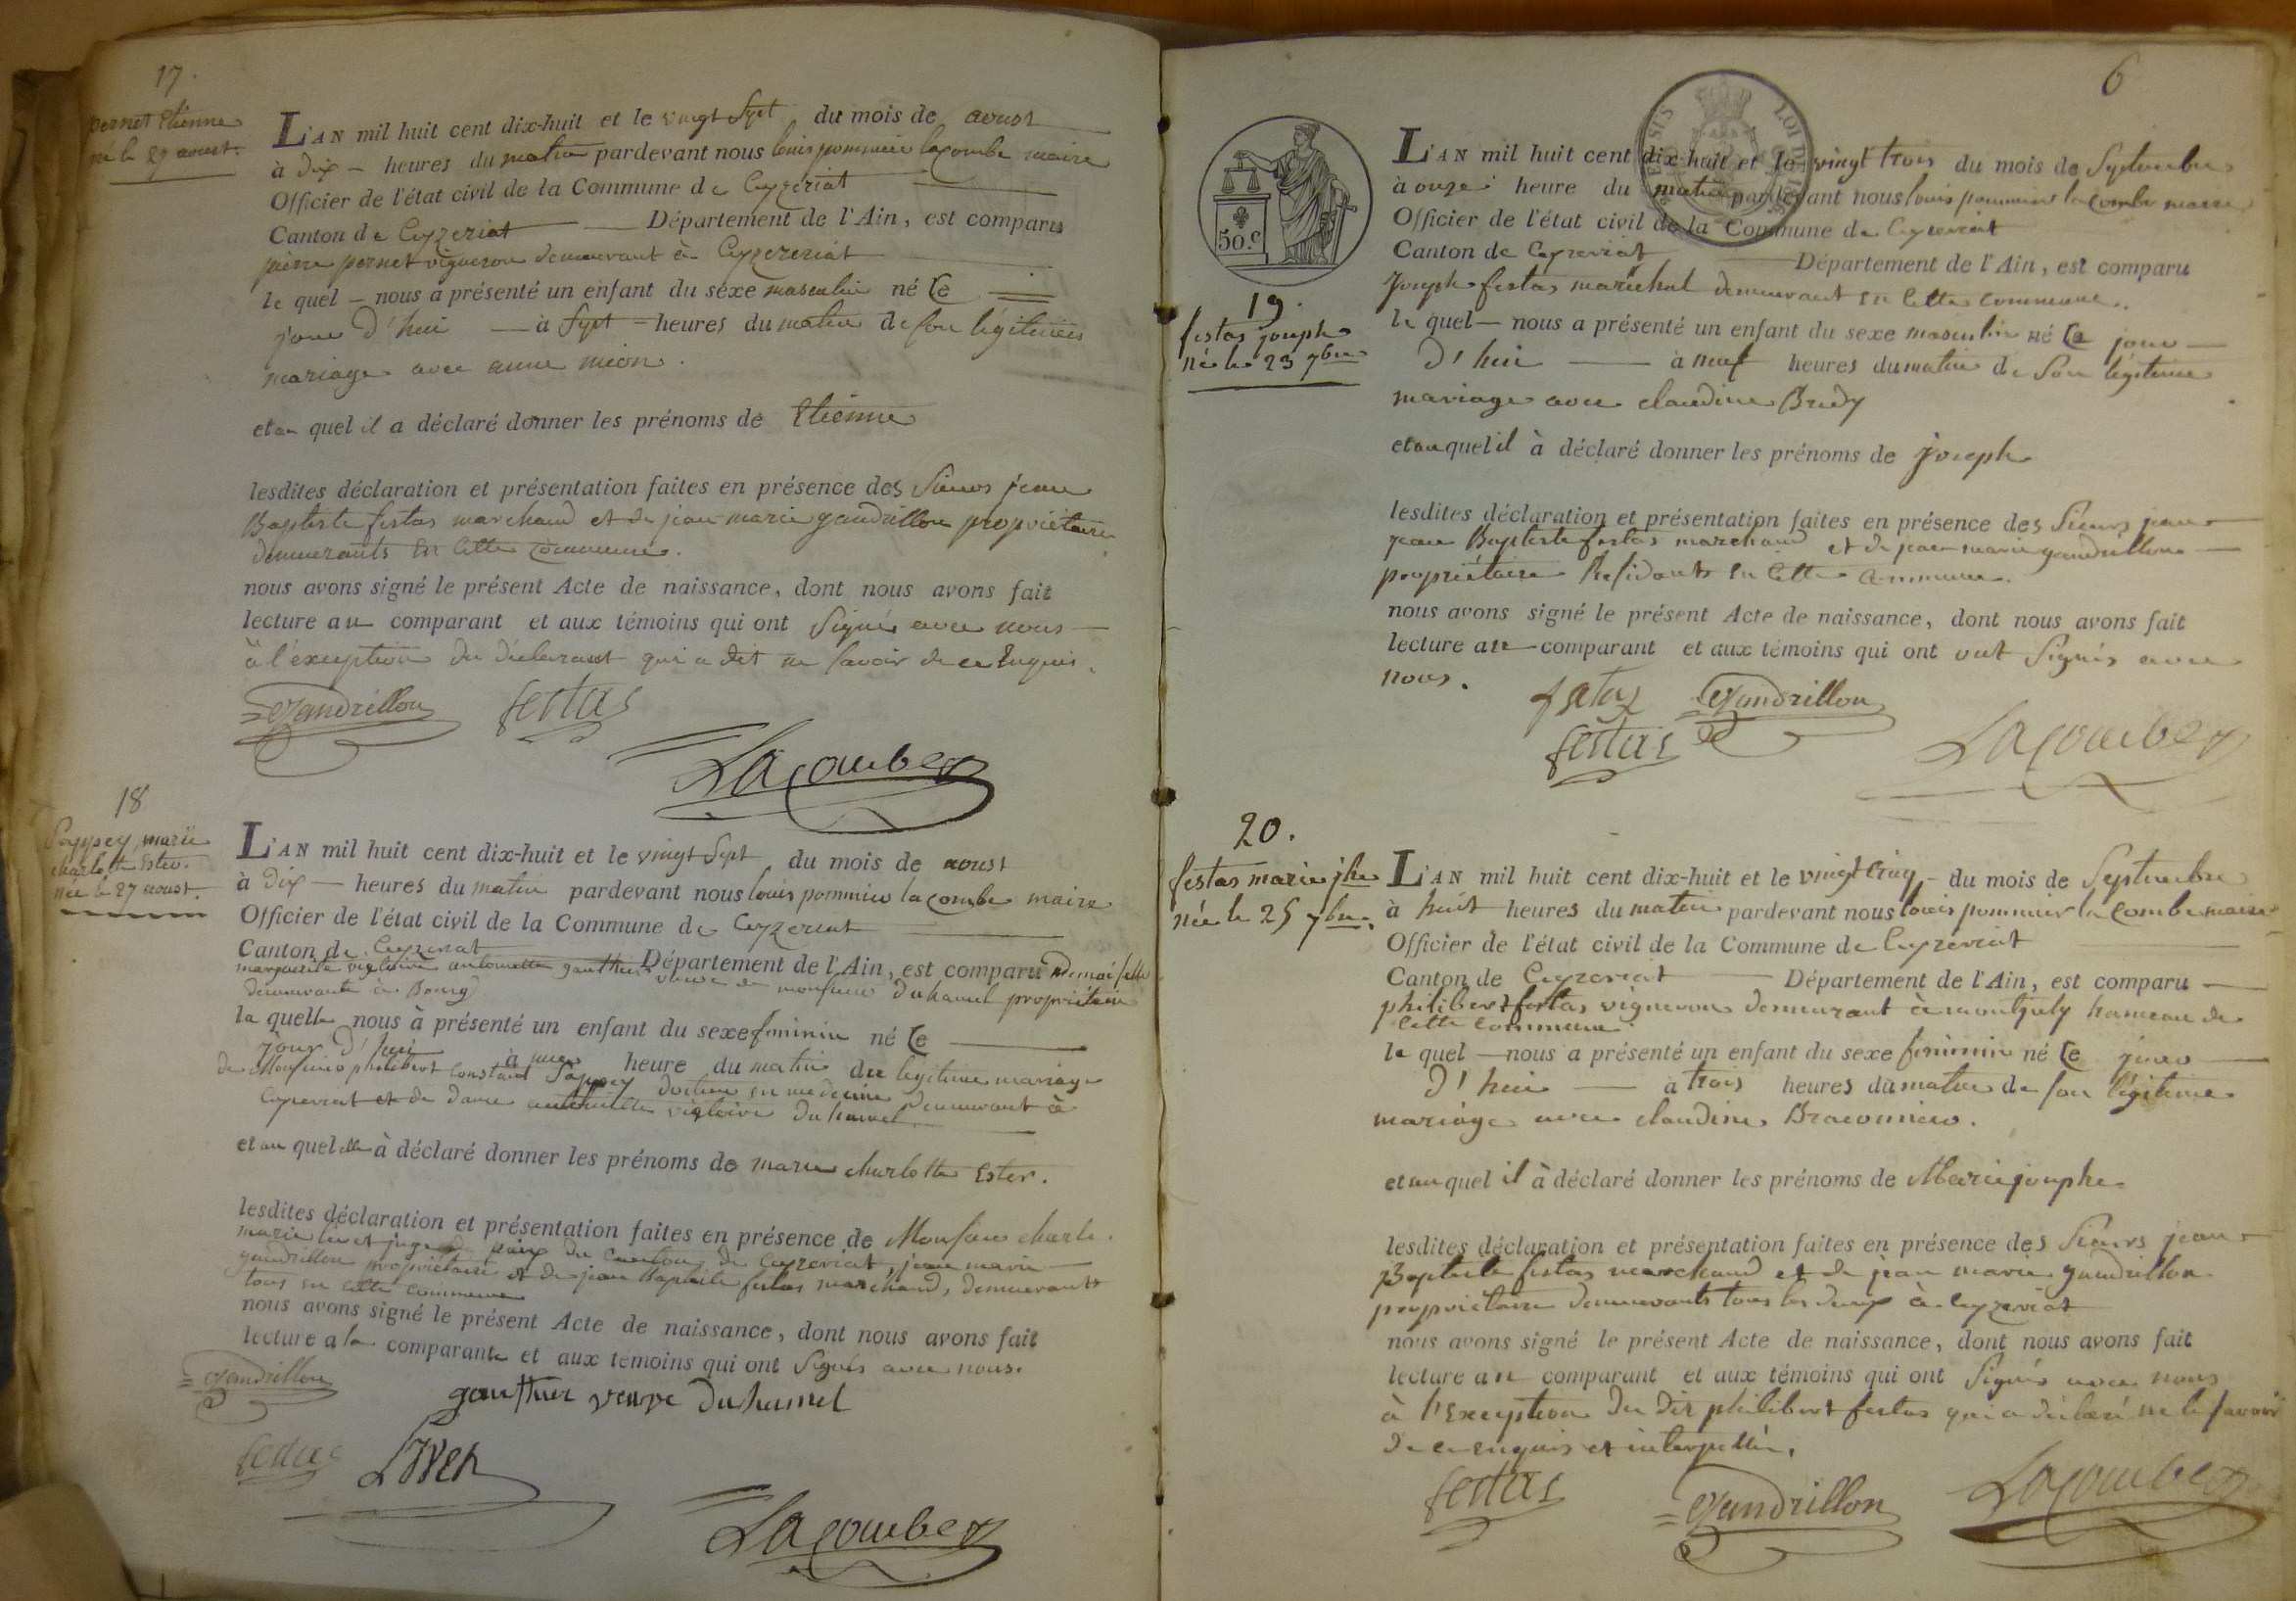 17.
pernet Etienne
né le 27 aoust.
L'AN mil huit cent dix-huit et le vingt Sept du mois de aoust
à Dix heures du matin pardevant nous louis pommier lacombe maire
Officier de l'état civil de la Commune de Ceyzeriat
Canton de Ceyzeriat Département de l'Ain, est comparu
pierre pernet vigneron demeurant à Ceyzereriat
le quel nous a présenté un enfant du sexe masculin né Ce
jour d'hui à Sept heures du matin de son légitime
mariage avec anne mion.
et au quel il a déclaré donner les prénoms de Etienne
lesdites déclaration et présentation faites en présence des Sieurs jean
Baptiste festas marchand et de jean marie gandrillon propriétaire
demeurants en Cette commune.
nous avons signé le présent Acte de naissance, dont nous avons fait
lecture au comparant et aux témoins qui ont Signés avec nous
à l'éxception du déclarant qui a dit ne savoir de ce Enquis.
Gandrillon festas
Lacombe
18
marie
charlotte Ester.
née le 27 aoust.
L'AN mil huit cent dix-huit et le vingt Sept du mois de aoust
à Dix heures du matin pardevant nous louis pommier lacombe maire
Officier de l'état civil de la Commune de Ceyzeriat
Canton de Ceyzeriat Département de l'Ain, est comparu Demoiselle
marguerite victoire antoinette gauthier veuve de monsieur duhamel propriétaire
demeurante à Bourg
la quelle nous à présenté un enfant du sexe feminin né Ce
jour d'hui à heure du matin du legitime mariage
de Monsieur philibert Constant docteur en medecine demeurant à
Ceyzeriat et de dame antoinette victoire duhamel
et au quel elle à déclaré donner les prénoms de marie charlotte Ester.
lesdites déclaration et présentation faites en présence de Monsieur charle
marie livet juge de paix du Canton de Ceyzeriat, jean marie
gandrillon propriétaire et de jean Baptiste festas marchand, demeurants
tous en cette commune
nous avons signé le présent Acte de naissance, dont nous avons fait
lecture a la comparante et aux témoins qui ont Signés avec nous.
Gandrillon
gauthier veuve Duhamel
festas Livet
Lacombe
6
50.c
19.
festas joseph
né le 23 7bre
L'AN mil huit cent dix-huit et le vingt trois du mois de Septembre
à onze heure du matin pardevant nous louis pommier lacombe maire
Officier de l'état civil de la Commune de Ceyzeriat
Canton de Ceyzeriat Département de l'Ain, est comparu
Joseph festas maréchal demeurant en Cette commune.
le quel nous a présenté un enfant du sexe masculin né Ce jour
d'hui à neuf heures du matin de Son légitime
mariage avec claudine Bredy
et au quel il à déclaré donner les prénoms de joseph
lesdites déclaration et présentation faites en présence des Sieurs jean
jean Baptiste festas marchand et de jean marie gandrillon
propriétaire Residants en Cette Commune.
nous avons signé le présent Acte de naissance, dont nous avons fait
lecture au comparant et aux témoins qui ont ont Signés avec
nous.
festas Gandrillon
festas Lacombe
20.
festas marie jphe
née le 25 7bre.
L'AN mil huit cent dix-huit et le vingt Cinq du mois de Septembre
à huit heures du matin pardevant nous louis pommier lacombe maire
Officier de l'état civil de la Commune de Ceyzeriat
Canton de Ceyzeriat Département de l'Ain, est comparu
philibert festas vigneron demeurant à montjuly hameau de
Cette commune.
le quel nous a présenté un enfant du sexe feminin né Ce jour
d'hui à trois heures du matin de son légitime
mariage avec claudine Braconnier.
et au quel il à déclaré donner les prénoms de Marie josephe
lesdites déclaration et présentation faites en présence des Sieurs jean
Baptiste festas marchand et de jean marie gandrillon
propriétaire demeurants tous les deux à Ceyzeriat
nous avons signé le présent Acte de naissance, dont nous avons fait
lecture au comparant et aux témoins qui ont Signés avec nous
à l'Exception du dit philibert festas qui a déclaré ne le savoir
de ce enquis et interpellé.
festas Gandrillon Lacombe